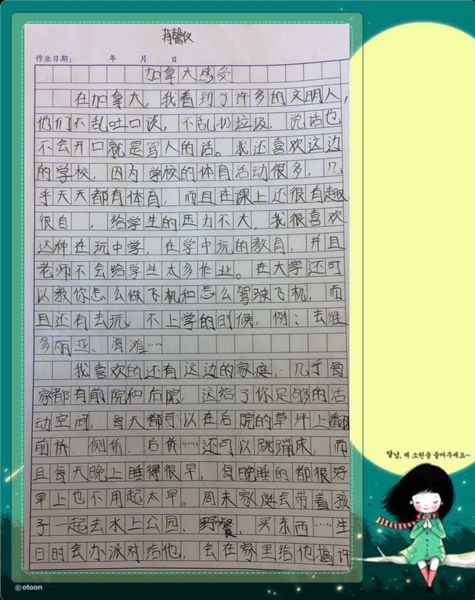 肖馨仪
作业日期：　　年　　月　　日
加拿大感受
在加拿大，我看到了许多的文明人，
他们不乱吐口谈，不乱扔垃圾，说话也
不会开口就是骂人的话。我还喜欢这边
的学校，因为学校的体育活动很多，几
乎天天都有体育，而且在课上还很有趣
很自，给学生的压力不大，我很喜欢
这种在玩中学，在学中玩的教育，并且
老师不会给学生太多作业。在大学还可
以教你怎么做飞机和怎么驾驶飞机，而
且还有去玩，不上学的时候，例：去维
多丽亚、海滩……
我喜欢的还有这边的家庭，几乎每
家都有前院和后院，这给了你足够的活
动空间，每天都可以在后院的草坪上翻
前桥、侧桥、后桥……还可以跳蹦床，而
且每天晚上睡得很早，每晚睡的都很好
早上也不用起太早。周末家庭会带着孩
子一起去水上公园、野餐、买东西……生
日时会办派对给他，会在家里给他搞许
달님, 제 소원을 들어주세요~
© otoon